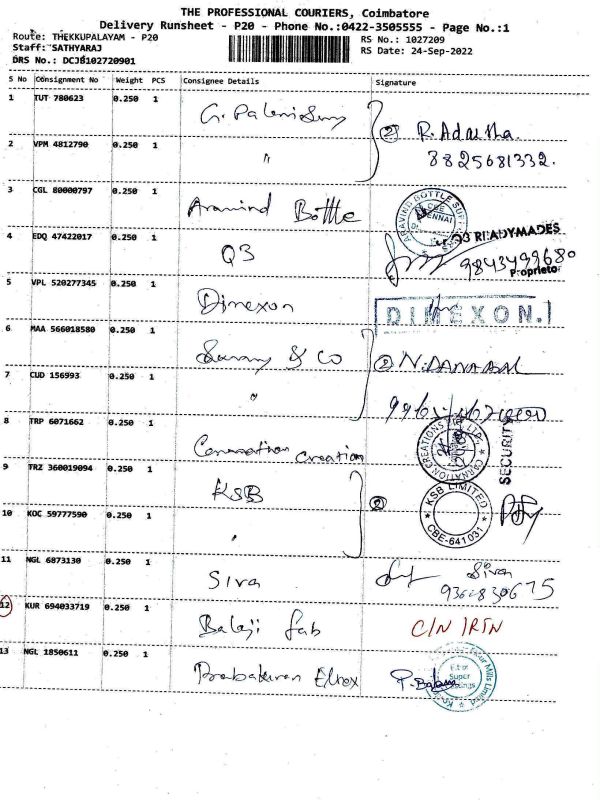 THE PROFESSIONAL COURIERS, Coimbatore
Delivery Runsheet - P20 - Phone No.:0422-3505555 - Page No.:1
Route: THEKKUPALAYAM - P20 RS No.: 1027209
Staff: SATHYARAJ RS Date: 24-Sep-2022
DRS No.: DCJB102720901
S No Consignment No Weight PCS Consignee Details Signature
1 TUT 780623 0.250 1 G.
2 R.
2 VPM 4812790 0.250 1 " 8825681332.
3 CGL 80000797 0.250 1 Aravind Bottle
4 EDQ 47422017 0.250 1 Q3
Q3 READYMADES
9843499680
Proprietor
5 VPL 520277345 0.250 1 Dimexon
DIMEXON.
6 MAA 566018580 0.250 1 & Co
2 N.
7 CUD 156993 0.250 1 "
8 TRP 6071662 0.250 1 Creation
SECURITY
9 TRZ 360019094 0.250 1 KSB
2
KSB LIMITED
CBE-641031
10 KOC 59777590 0.250 1 "
11 NGL 6873130 0.250 1 Siva Siva
12 KUR 694033719 0.250 1 Balaji fab C/N IRTN
13 NGL 1850611 0.250 1
P.